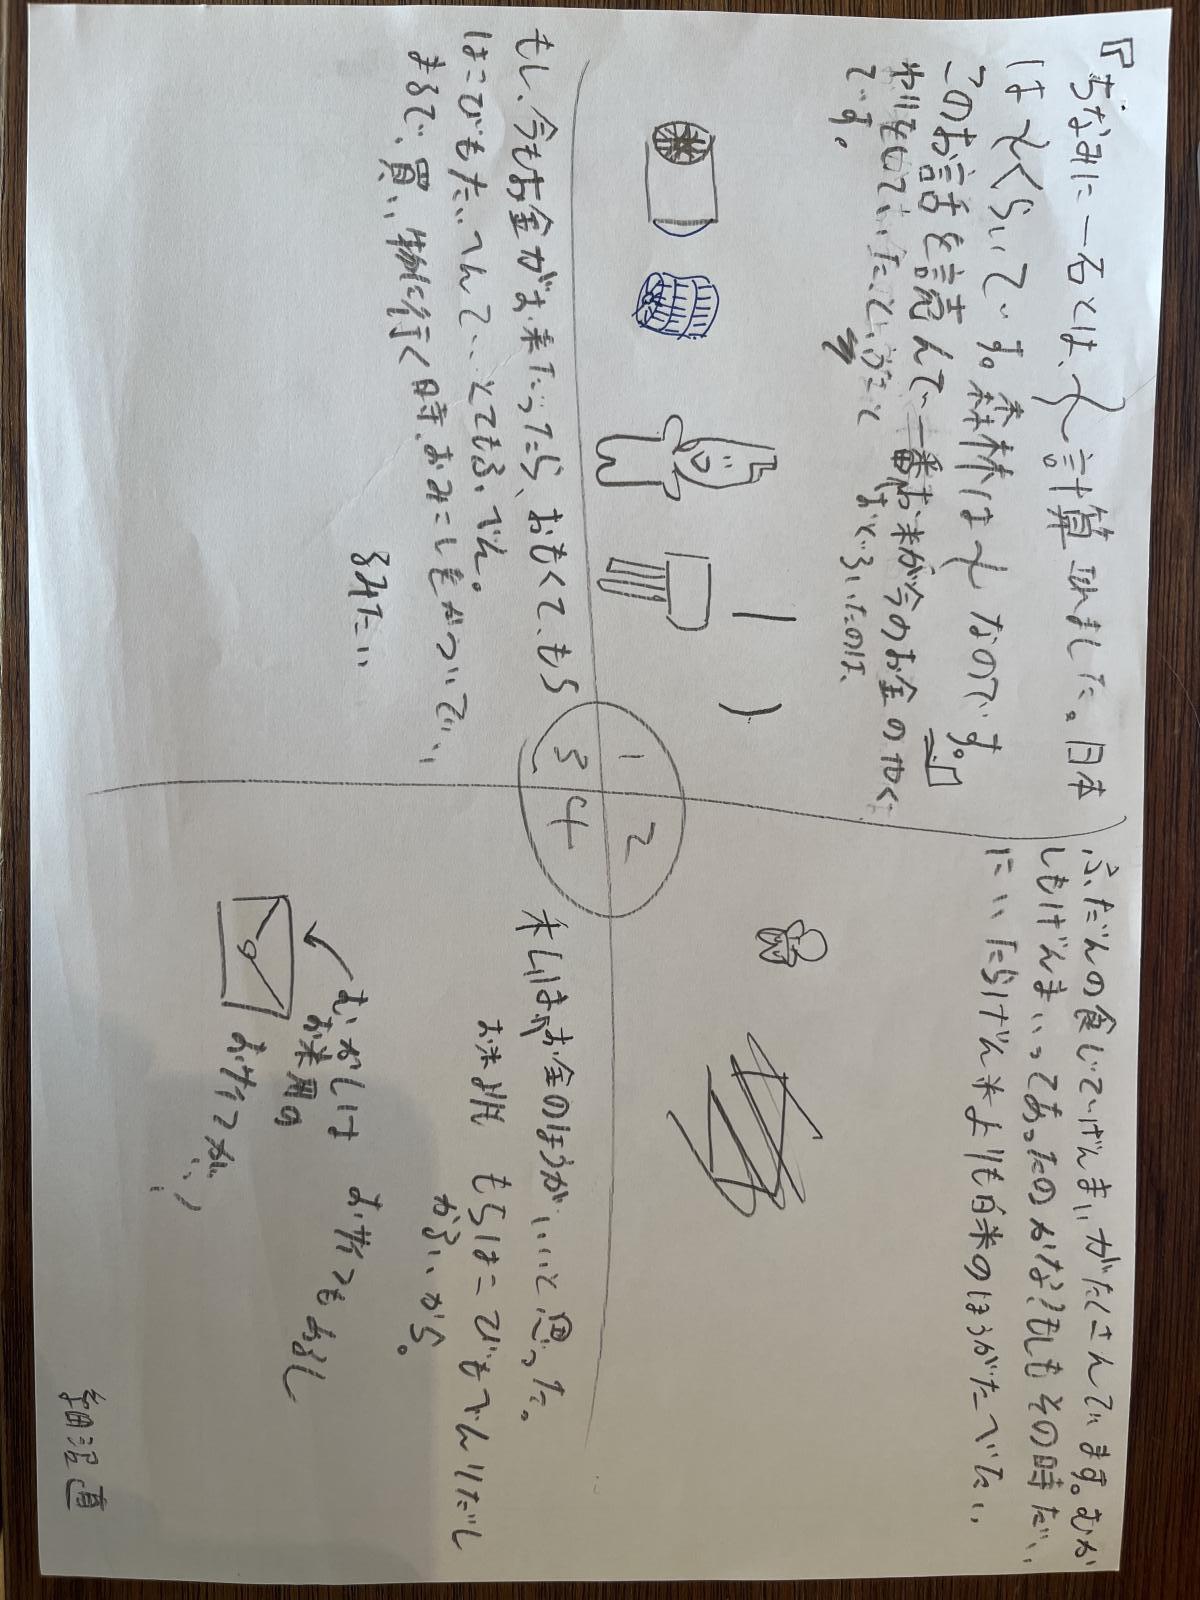 『ちなみに一石とは、
計算
ました。日本
は
くらいです。森林は
なのです。
このお話を読んで一番
おどろいたのは、
お米が今のお金のやく
わりをしていたということ
です。
1
2
3
4
ふだんの食じでげんまいがたくさんでいます。むか
しもげんまいってあったのかな?もしもその時だい
にいたらげん米よりも白米のほうがたべたい
もし、今もお金がお米だったら、おもくて、もち
はこびもたいへんで、とてもふべん。
まるで、買い物に行く時、おみこしをかついでい
るみたい
私はお金のほうがいいと思った。
お米よりも
もちはこびもべんりだし
かるいから。
おサイフもあるし
むかしは
お米用の
おサイフが、、、
細沼直